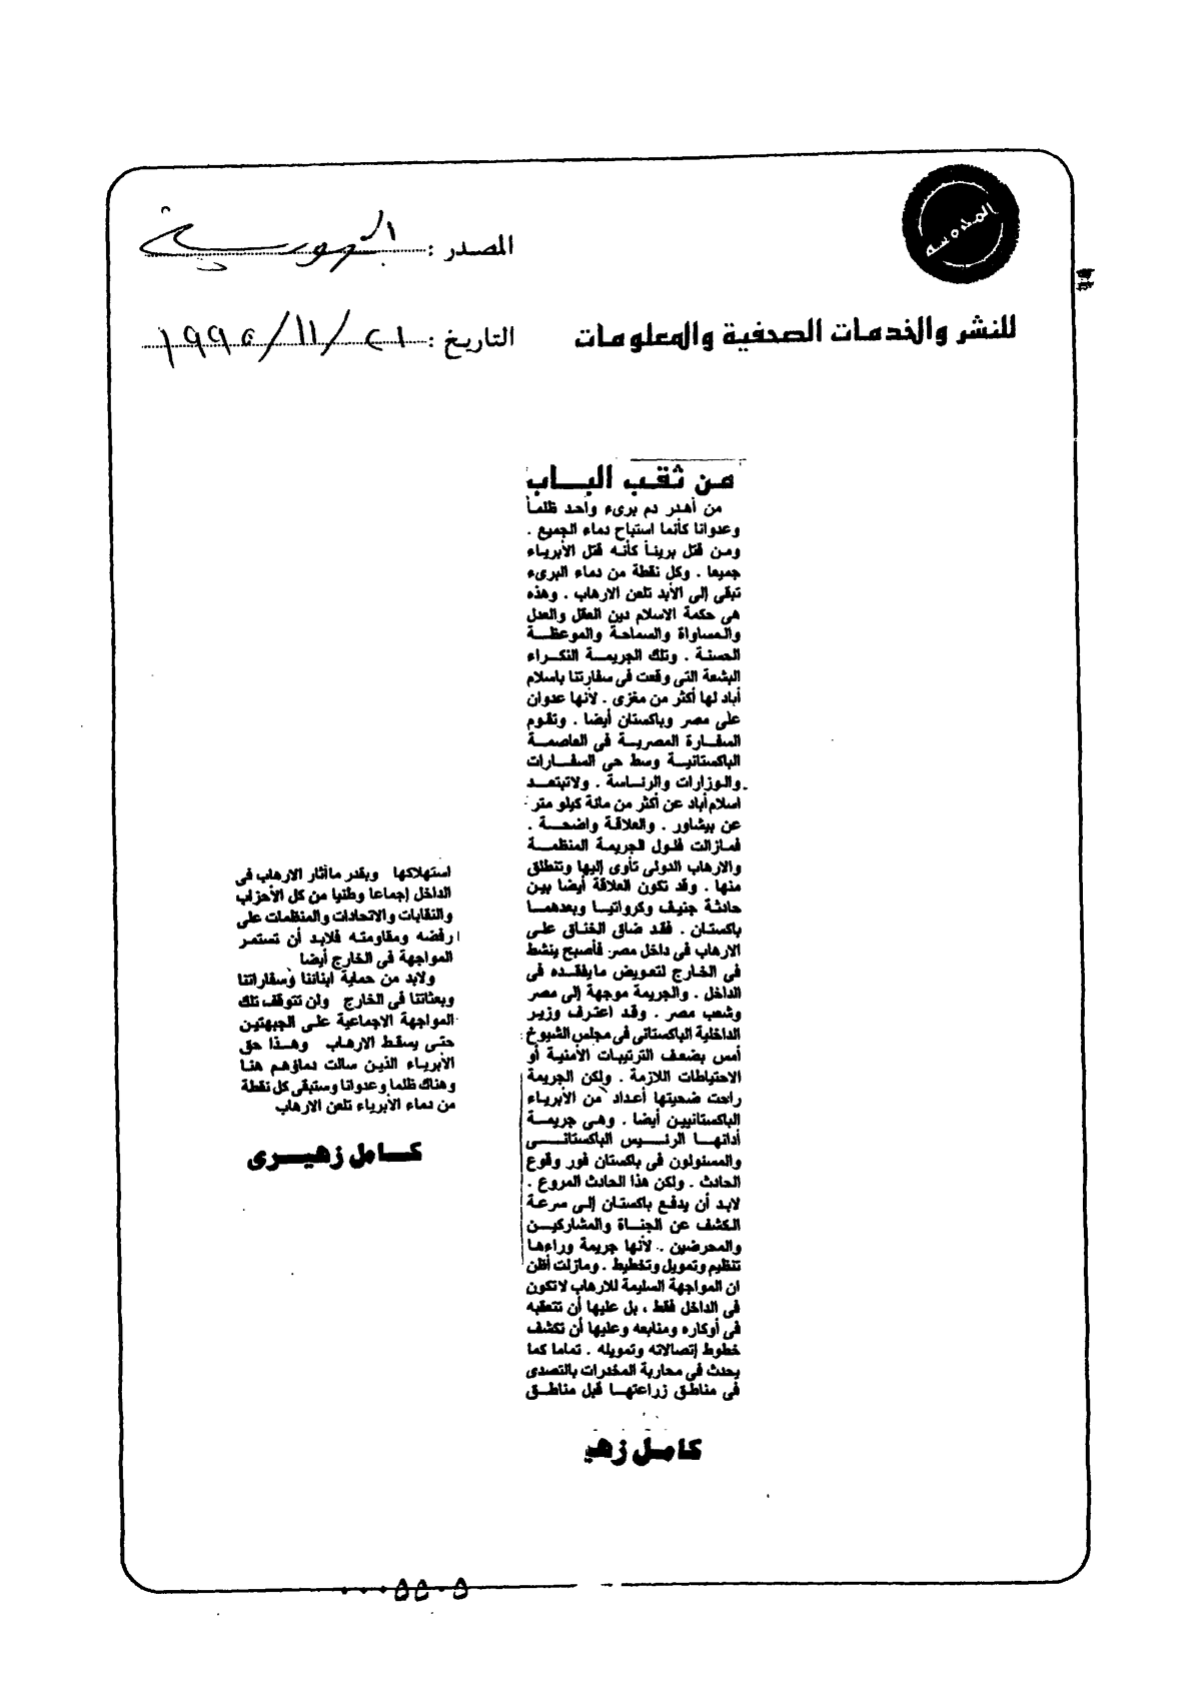 المصدر : الجمهورية
للنشر والخدمات الصحفية والمعلومات
التاريخ : ٢١ / ١١ / ١٩٩٥
من ثقب الباب
من أهدر دم برىء واحد ظلماً
وعدوانا كأنما استباح دماء الجميع .
ومن قتل بريئاً كأنه قتل الأبرياء
جميعا . وكل نقطة من دماء البرىء
تبقى إلى الأبد تلعن الارهاب . وهذه
هى حكمة الاسلام دين العقل والعدل
والمساواة والسماحة والموعظة
الحسنة . وتلك الجريمة النكراء
البشعة التى وقعت فى سفارتنا باسلام
أباد لها أكثر من مغزى . لأنها عدوان
على مصر وباكستان أيضا . وتقوم
السفارة المصرية فى العاصمة
الباكستانية وسط حى السفارات
والوزارات والرئاسة . ولاتبتعد
اسلام أباد عن أكثر من مائة كيلو متر
عن بيشاور . والعلاقة واضحة .
فمازالت فلول الجريمة المنظمة
والارهاب الدولى تأوى إليها وتنطلق
منها . وقد تكون العلاقة أيضا بين
حادثة جنيف وكرواتيا وبعدهما
باكستان . فقد ضاق الخناق على
الارهاب فى داخل مصر فأصبح ينشط
فى الخارج لتعويض مايفقده فى
الداخل . والجريمة موجهة إلى مصر
وشعب مصر . وقد اعترف وزير
الداخلية الباكستانى فى مجلس الشيوخ
أمس بضعف الترتيبات الأمنية أو
الاحتياطات اللازمة . ولكن الجريمة
راحت ضحيتها أعداد من الأبرياء
الباكستانيين أيضا . وهى جريمة
أدانها الرئيس الباكستانى
والمسئولون فى باكستان فور وقوع
الحادث . ولكن هذا الحادث المروع .
لابد أن يدفع باكستان إلى سرعة
الكشف عن الجناة والمشاركين
والمحرضين .. لأنها جريمة وراءها
تنظيم وتمويل وتخطيط . ومازلت أظن
ان المواجهة السليمة للارهاب لاتكون
فى الداخل فقط ، بل عليها أن تتعقبه
فى أوكاره ومنابعه وعليها أن تكشف
خطوط إتصالاته وتمويله . تماما كما
يحدث فى محاربة المخدرات بالتصدى
فى مناطق زراعتها قبل مناطق
كامل زهي
استهلاكها وبقدر ماأثار الارهاب فى
الداخل إجماعا وطنيا من كل الأحزاب
والنقابات والاتحادات والمنظمات على
رفضه ومقاومته فلابد أن تستمر
المواجهة فى الخارج أيضا
ولابد من حماية ابنائنا وسفاراتنا
وبعثاتنا فى الخارج ولن تتوقف تلك
المواجهة الاجماعية على الجبهتين
حتى يسقط الارهاب وهذا حق
الأبرياء الذين سالت دماؤهم هنا
وهناك ظلما وعدوانا وستبقى كل نقطة
من دماء الأبرياء تلعن الارهاب
كامل زهيرى